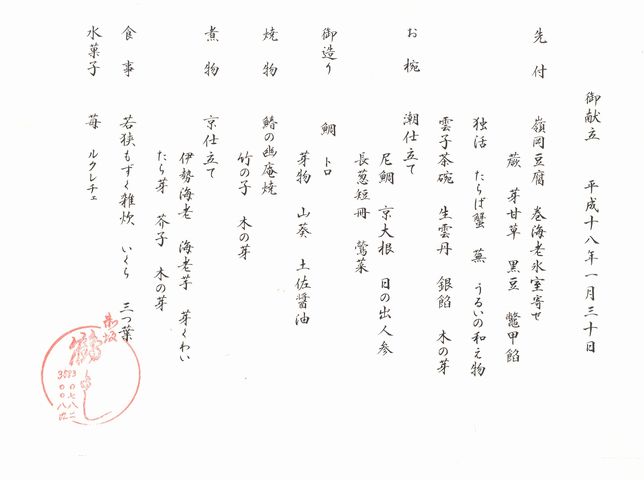 御献立 平成十八年一月三十日
先付 嶺岡豆腐 巻海老氷室寄せ
蕨 芽甘草 黒豆 鼈甲餡
独活 たらば蟹 蕪 うるいの和え物
雲子茶碗 生雲丹 銀餡 木の芽
お椀 潮仕立て
尼鯛 京大根 日の出人参
長葱短冊 鶯菜
御造り 鯛 トロ
芽物 山葵 土佐醤油
焼物 鰆の幽庵焼
竹の子 木の芽
煮物 京仕立て
伊勢海老 海老芋 芽くわい
たら芽 芥子 木の芽
食事 若狭もずく雑炊 いくら 三つ葉
水菓子 苺 ルクレチェ
赤坂
3583